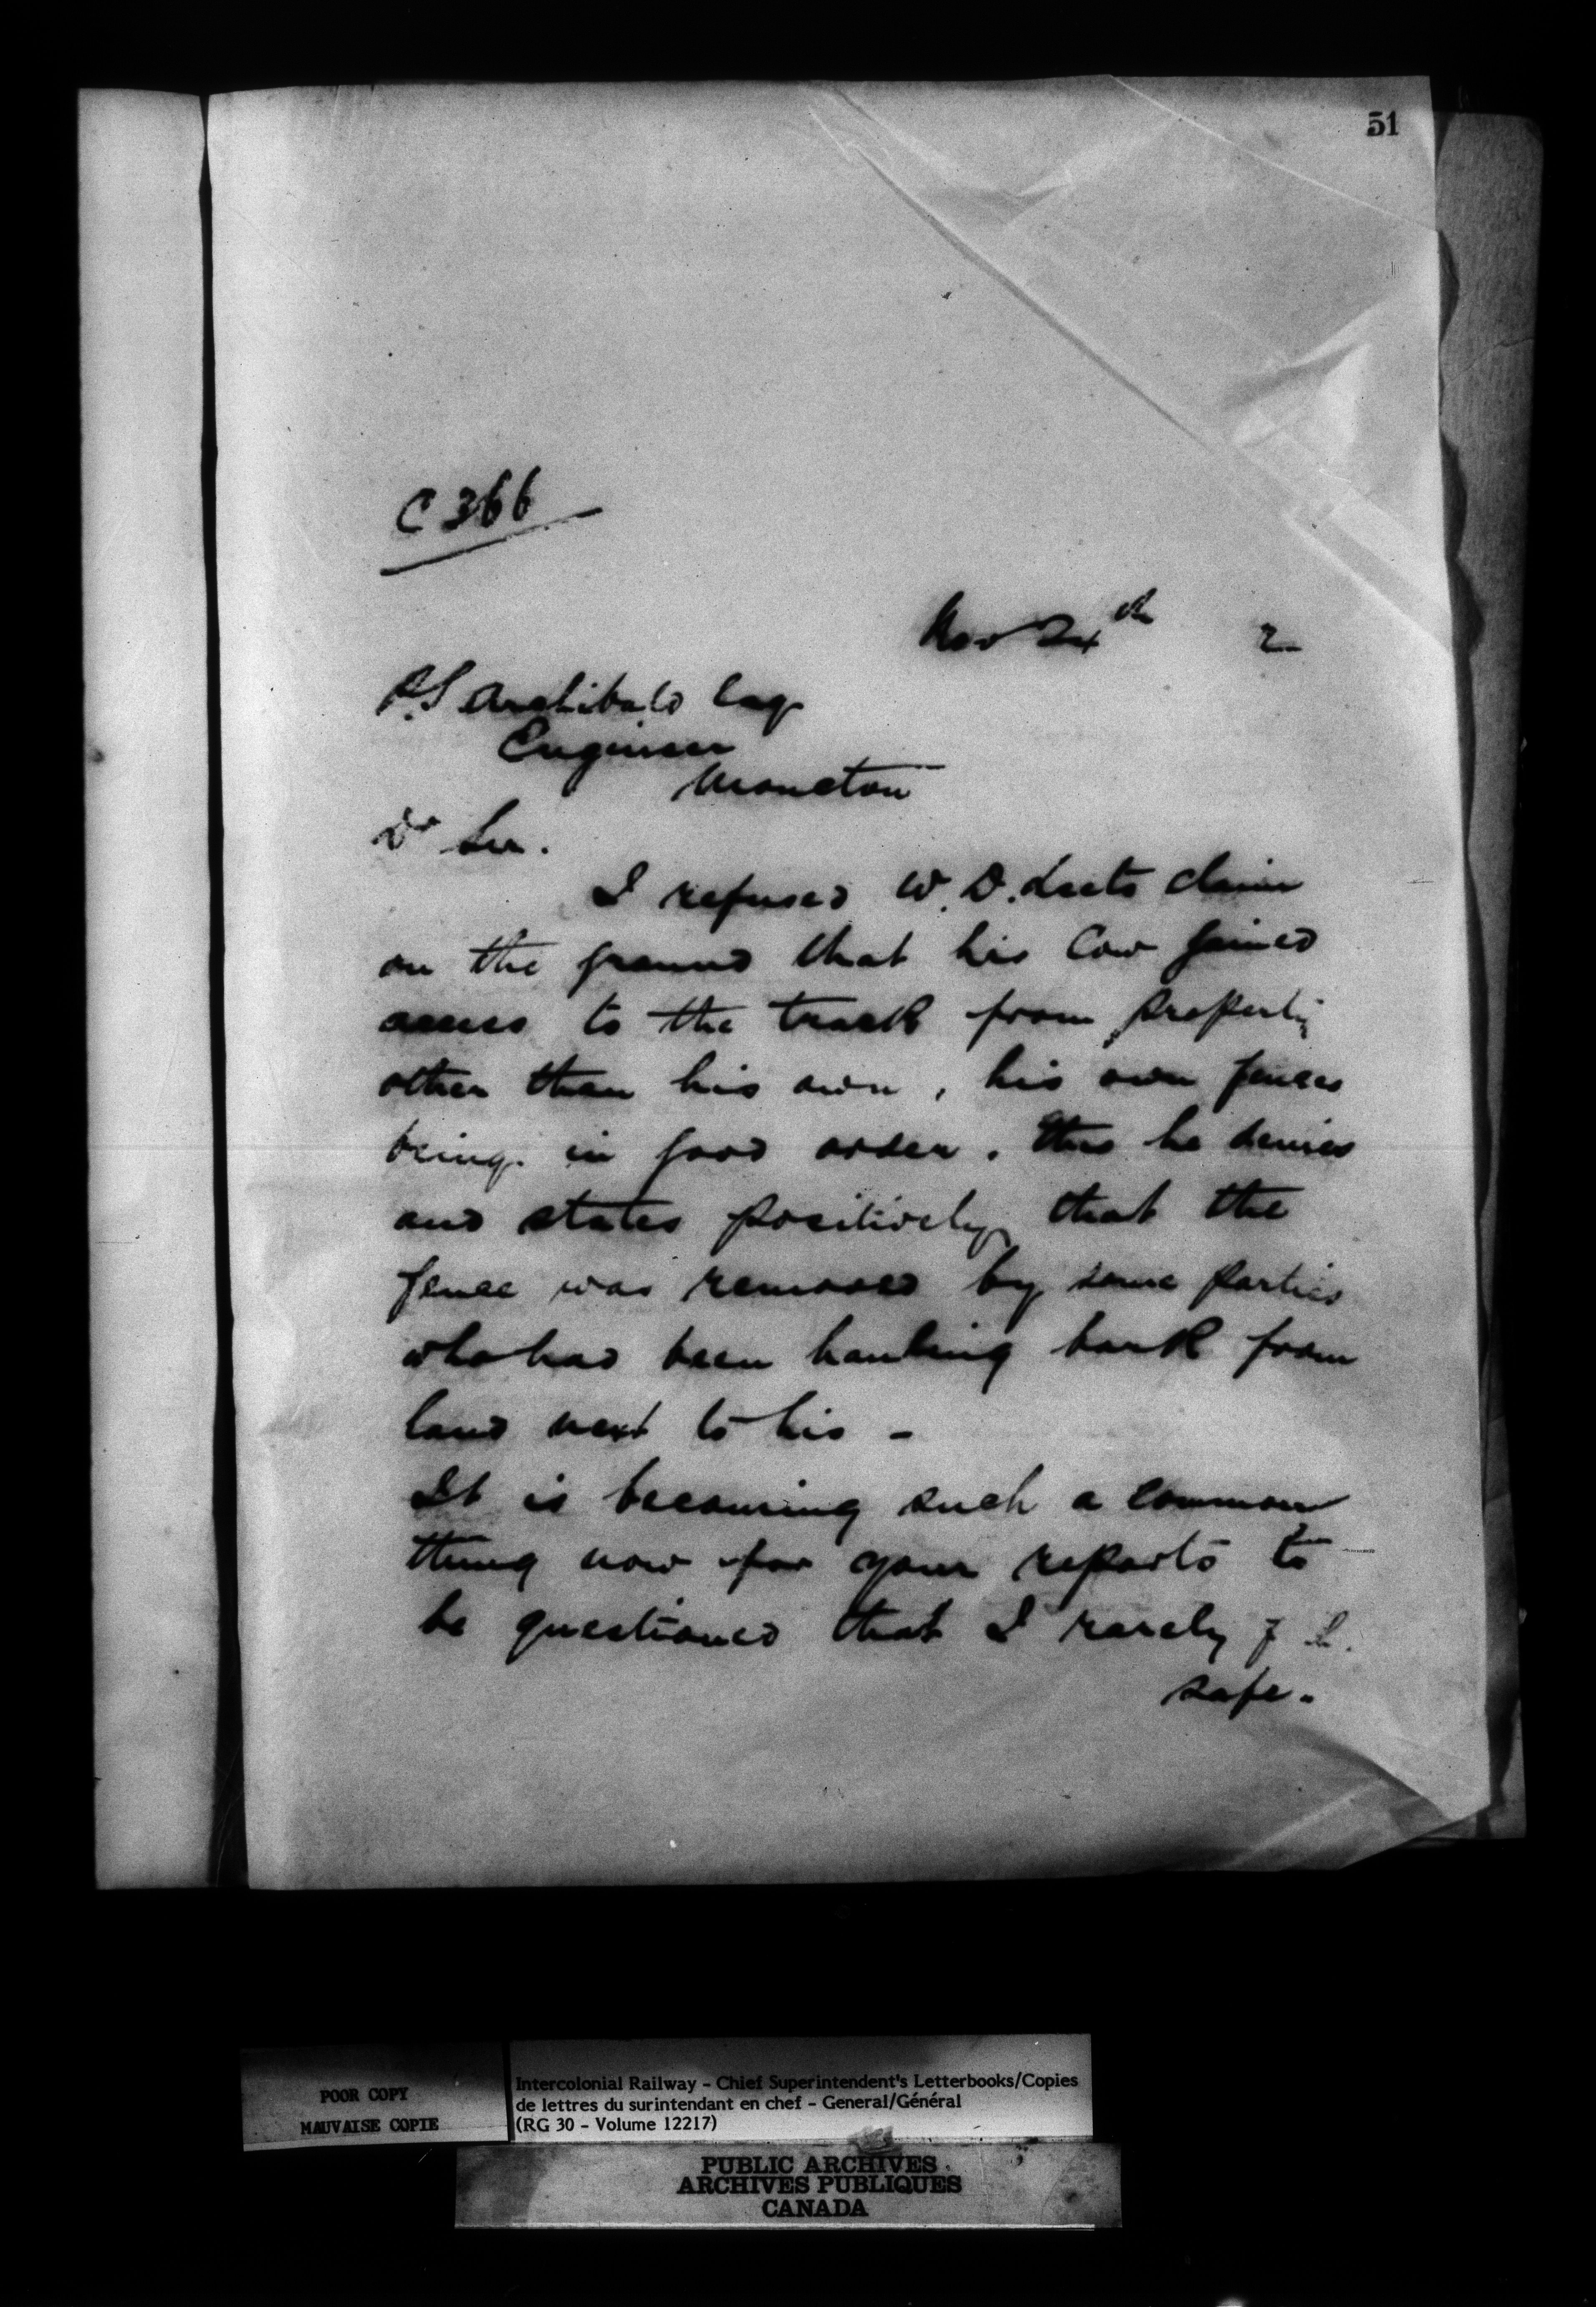 51
C 366
Nov 24th 2
P.S Archibald Esq
Engineer
Moncton
Dr Sir.
I refused W. D. claim
on the ground that his Cow gained
access to the track from property
other than his own, his own fences
being in good order. this he denies
and states positively that the
fence was removed by some parties
who had been hauling bark from
land next to his -
It is becoming such a common
thing now for your reports to
be questioned that I rarely
safe.
POOR COPY
MAUVAISE COPIE
Intercolonial Railway - Chief Superintendent's Letterbooks/Copies
de lettres du surintendant en chef - General/Général
(RG 30 - Volume 12217)
PUBLIC ARCHIVES
ARCHIVES PUBLIQUES
CANADA